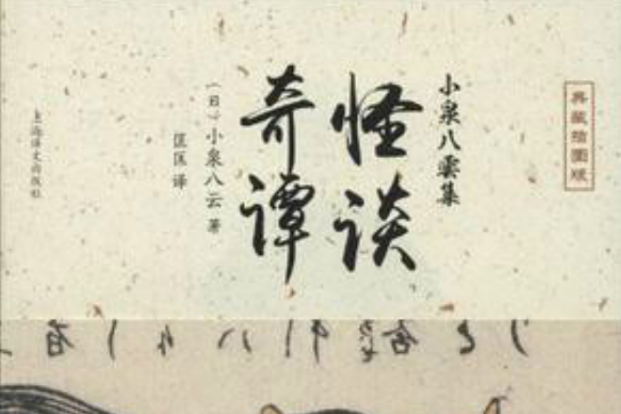 典藏插图版
小泉八雲集
怪谈
奇谭
（日）小泉八云 著
匡匡 译
上海译文出版社